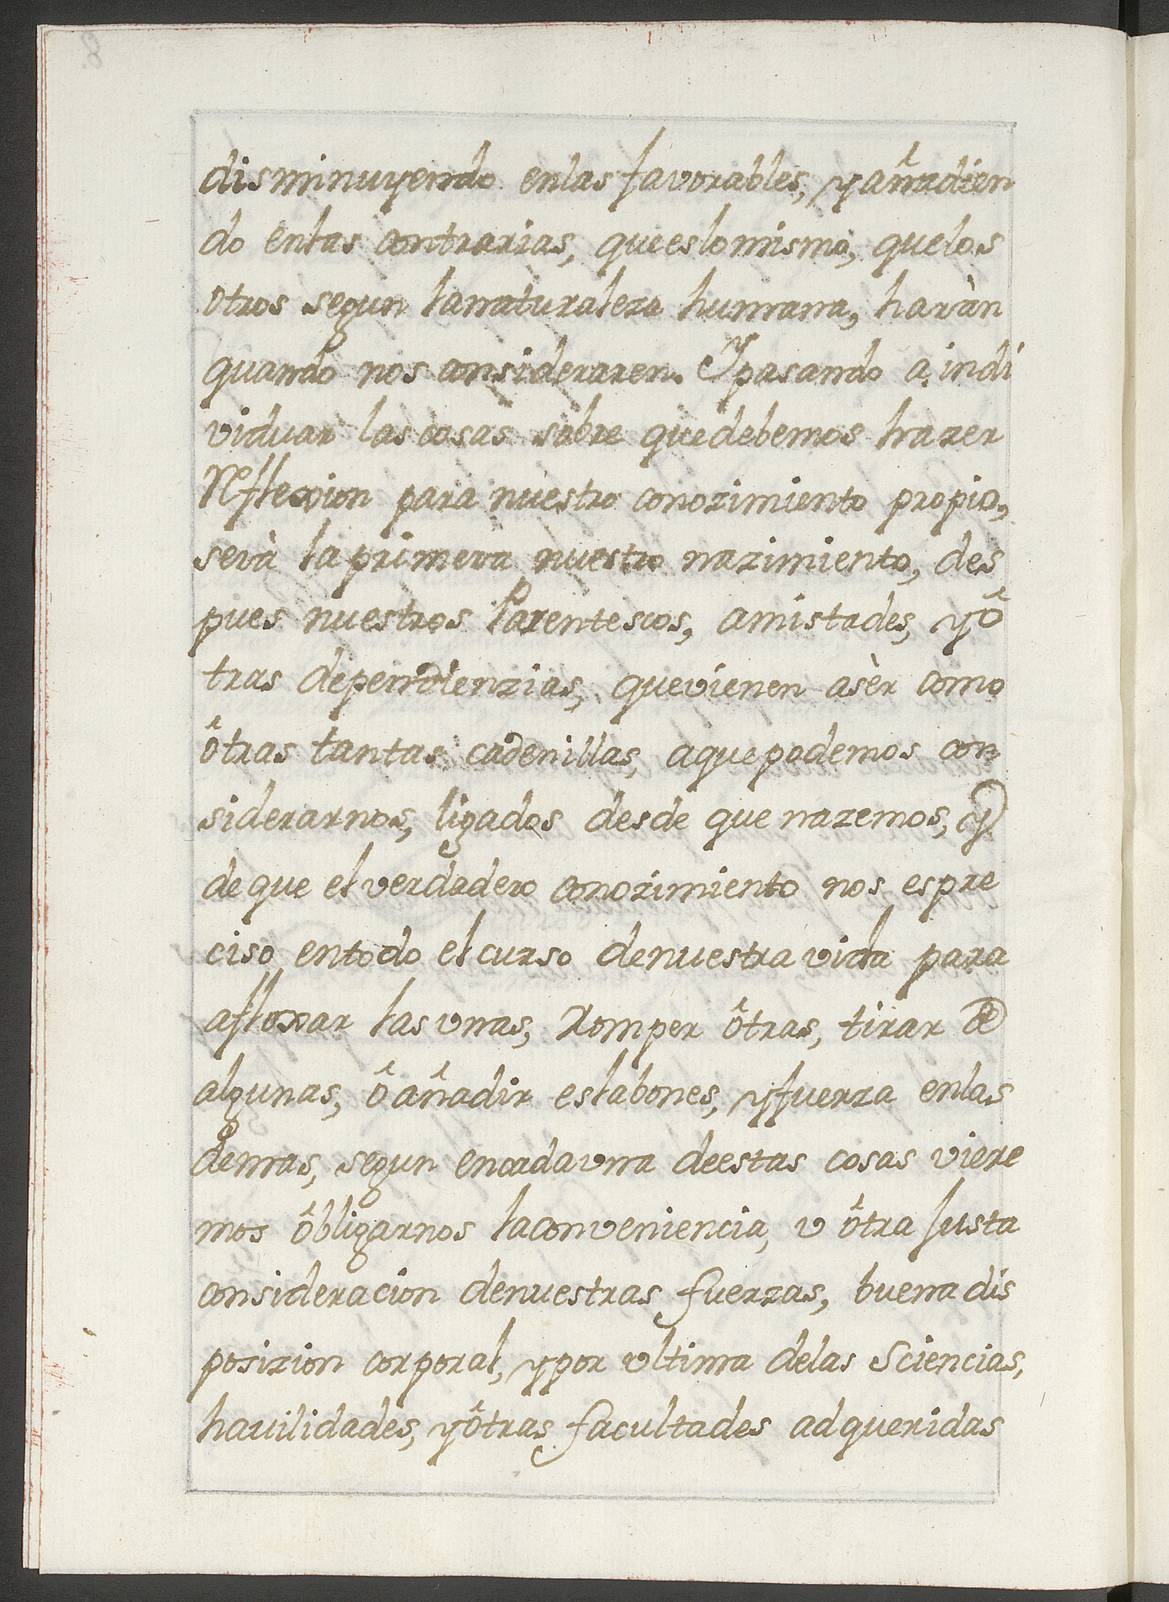 disminuyendo enlas favorables, y añadien
do enlas contrarias, que eslomismo, quelos
otros segun lanaturaleza humana, haràn
quando nos consideraren. Y pasando a indi
viduar las cosas sobre quedebemos hazer
Reflexion para nuestro conozimiento propio,
serà la primera nuestro nazimiento, des
pues nuestros Parentescos, amistades, y ô
tras dependienzias, quevienen asèr como
ôtras tantas cadenillas, aquepodemos con
siderarnos, ligados desde que nazemos, y
de que el verdadero conozimiento nos espre
ciso entodo el curso denuestra vida para
afloxar las unas, Romper ôtras, tirar de
algunas, ô añadir eslabones, yfuerza enlas
demas, segun encadauna deestas cosas viere
mos ôbligarnos laconveniencia, v ôtra Justa
consideracion denuestras fuerzas, buena dis
posizion corporal, ypor vltima delas Sciencias,
hauilidades, yôtras facultades adqueridas